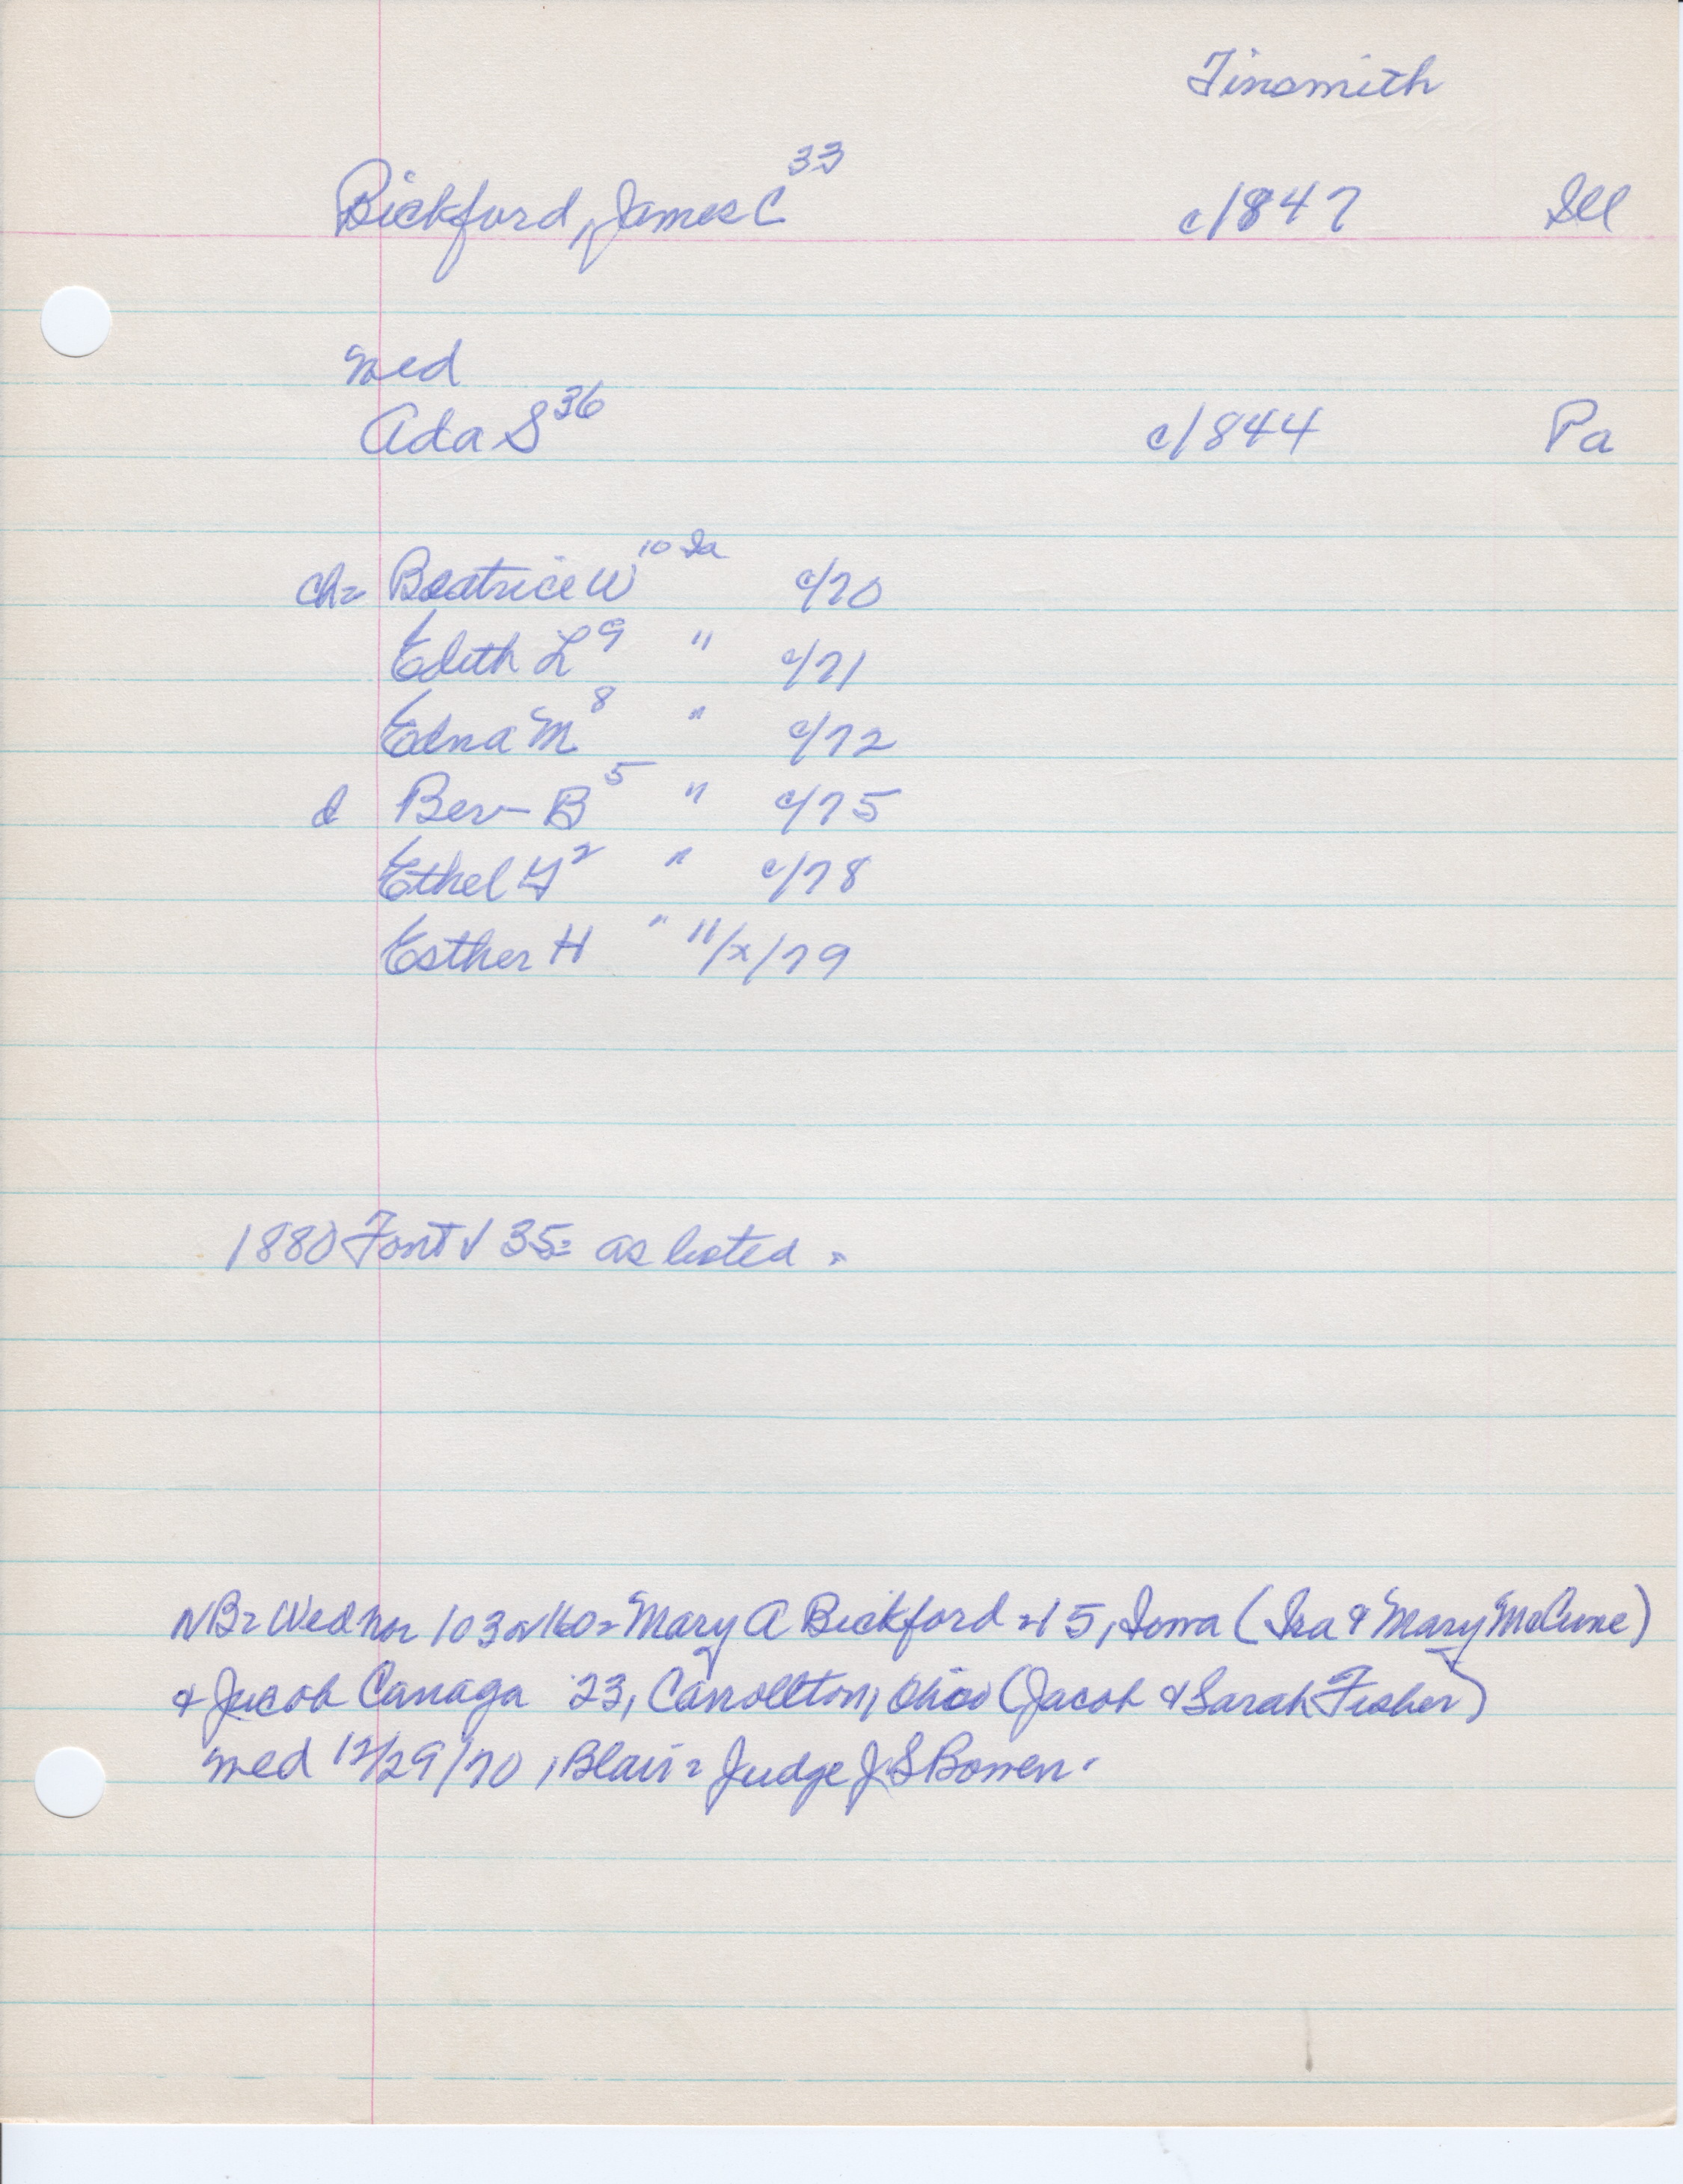 Tinsmith
Bickford, James C 33 c/1847 Ill
med
Ada S 36 c/1844 Pa
ch= Beatrice W 10 Ia c/70
Edith L 9 " c/71
Edna M 8 " c/72
d Bev- B 5 " c/75
Ethel G 2 " c/78
Esther H " 11/x/79
1880 Font V 35= as listed.
NB= Wed nor 103 v160= Mary A Bickford = 15, Iowa (Ira & Mary McCune)
& Jacob Canaga 23, Carrollton, Ohio (Jacob & Sarah Fisher)
med 12/29/70, Blair= Judge J S Bowen.